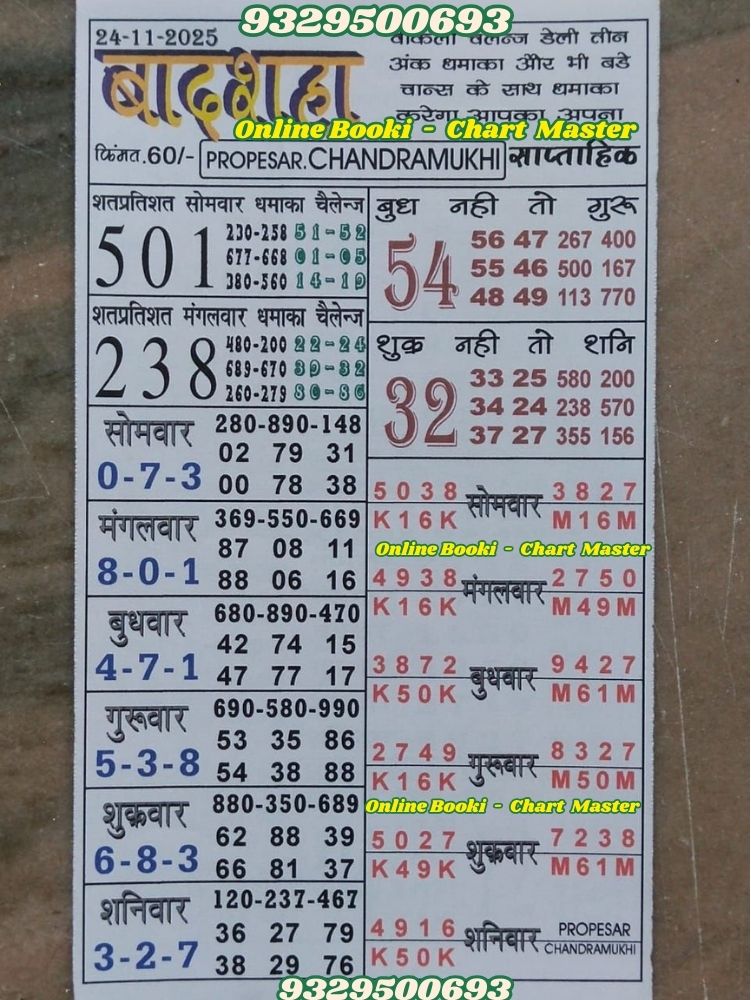 9329500693
24-11-2025
बादशहा
वाकेला चॅलेन्ज डेली तीन
अंक धमाका और भी बडे
चान्स के साथ धमाका
करेगा आपका अपना
Online Booki - Chart Master
किंमत.60/- PROPESAR.CHANDRAMUKHI साप्ताहिक
शतप्रतिशत सोमवार धमाका चैलेन्ज
501
230-258 51-52
677-668 01-05
380-560 14-19
शतप्रतिशत मंगलवार धमाका चैलेन्ज
238
480-200 22-24
689-670 39-32
260-279 80-86
बुध नही तो गुरू
54
56 47 267 400
55 46 500 167
48 49 113 770
शुक्र नही तो शनि
32
33 25 580 200
34 24 238 570
37 27 355 156
सोमवार 280-890-148
02 79 31
0-7-3 00 78 38
मंगलवार 369-550-669
87 08 11
8-0-1 88 06 16
बुधवार 680-890-470
42 74 15
4-7-1 47 77 17
गुरूवार 690-580-990
53 35 86
5-3-8 54 38 88
शुक्रवार 880-350-689
62 88 39
6-8-3 66 81 37
शनिवार 120-237-467
36 27 79
3-2-7 38 29 76
5038 सोमवार 3827
K16K M16M
Online Booki - Chart Master
4938 मंगलवार 2750
K16K M49M
3872 बुधवार 9427
K50K M61M
2749 गुरूवार 8327
K16K M50M
Online Booki - Chart Master
5027 शुक्रवार 7238
K49K M61M
4916 शनिवार PROPESAR
K50K CHANDRAMUKHI
9329500693